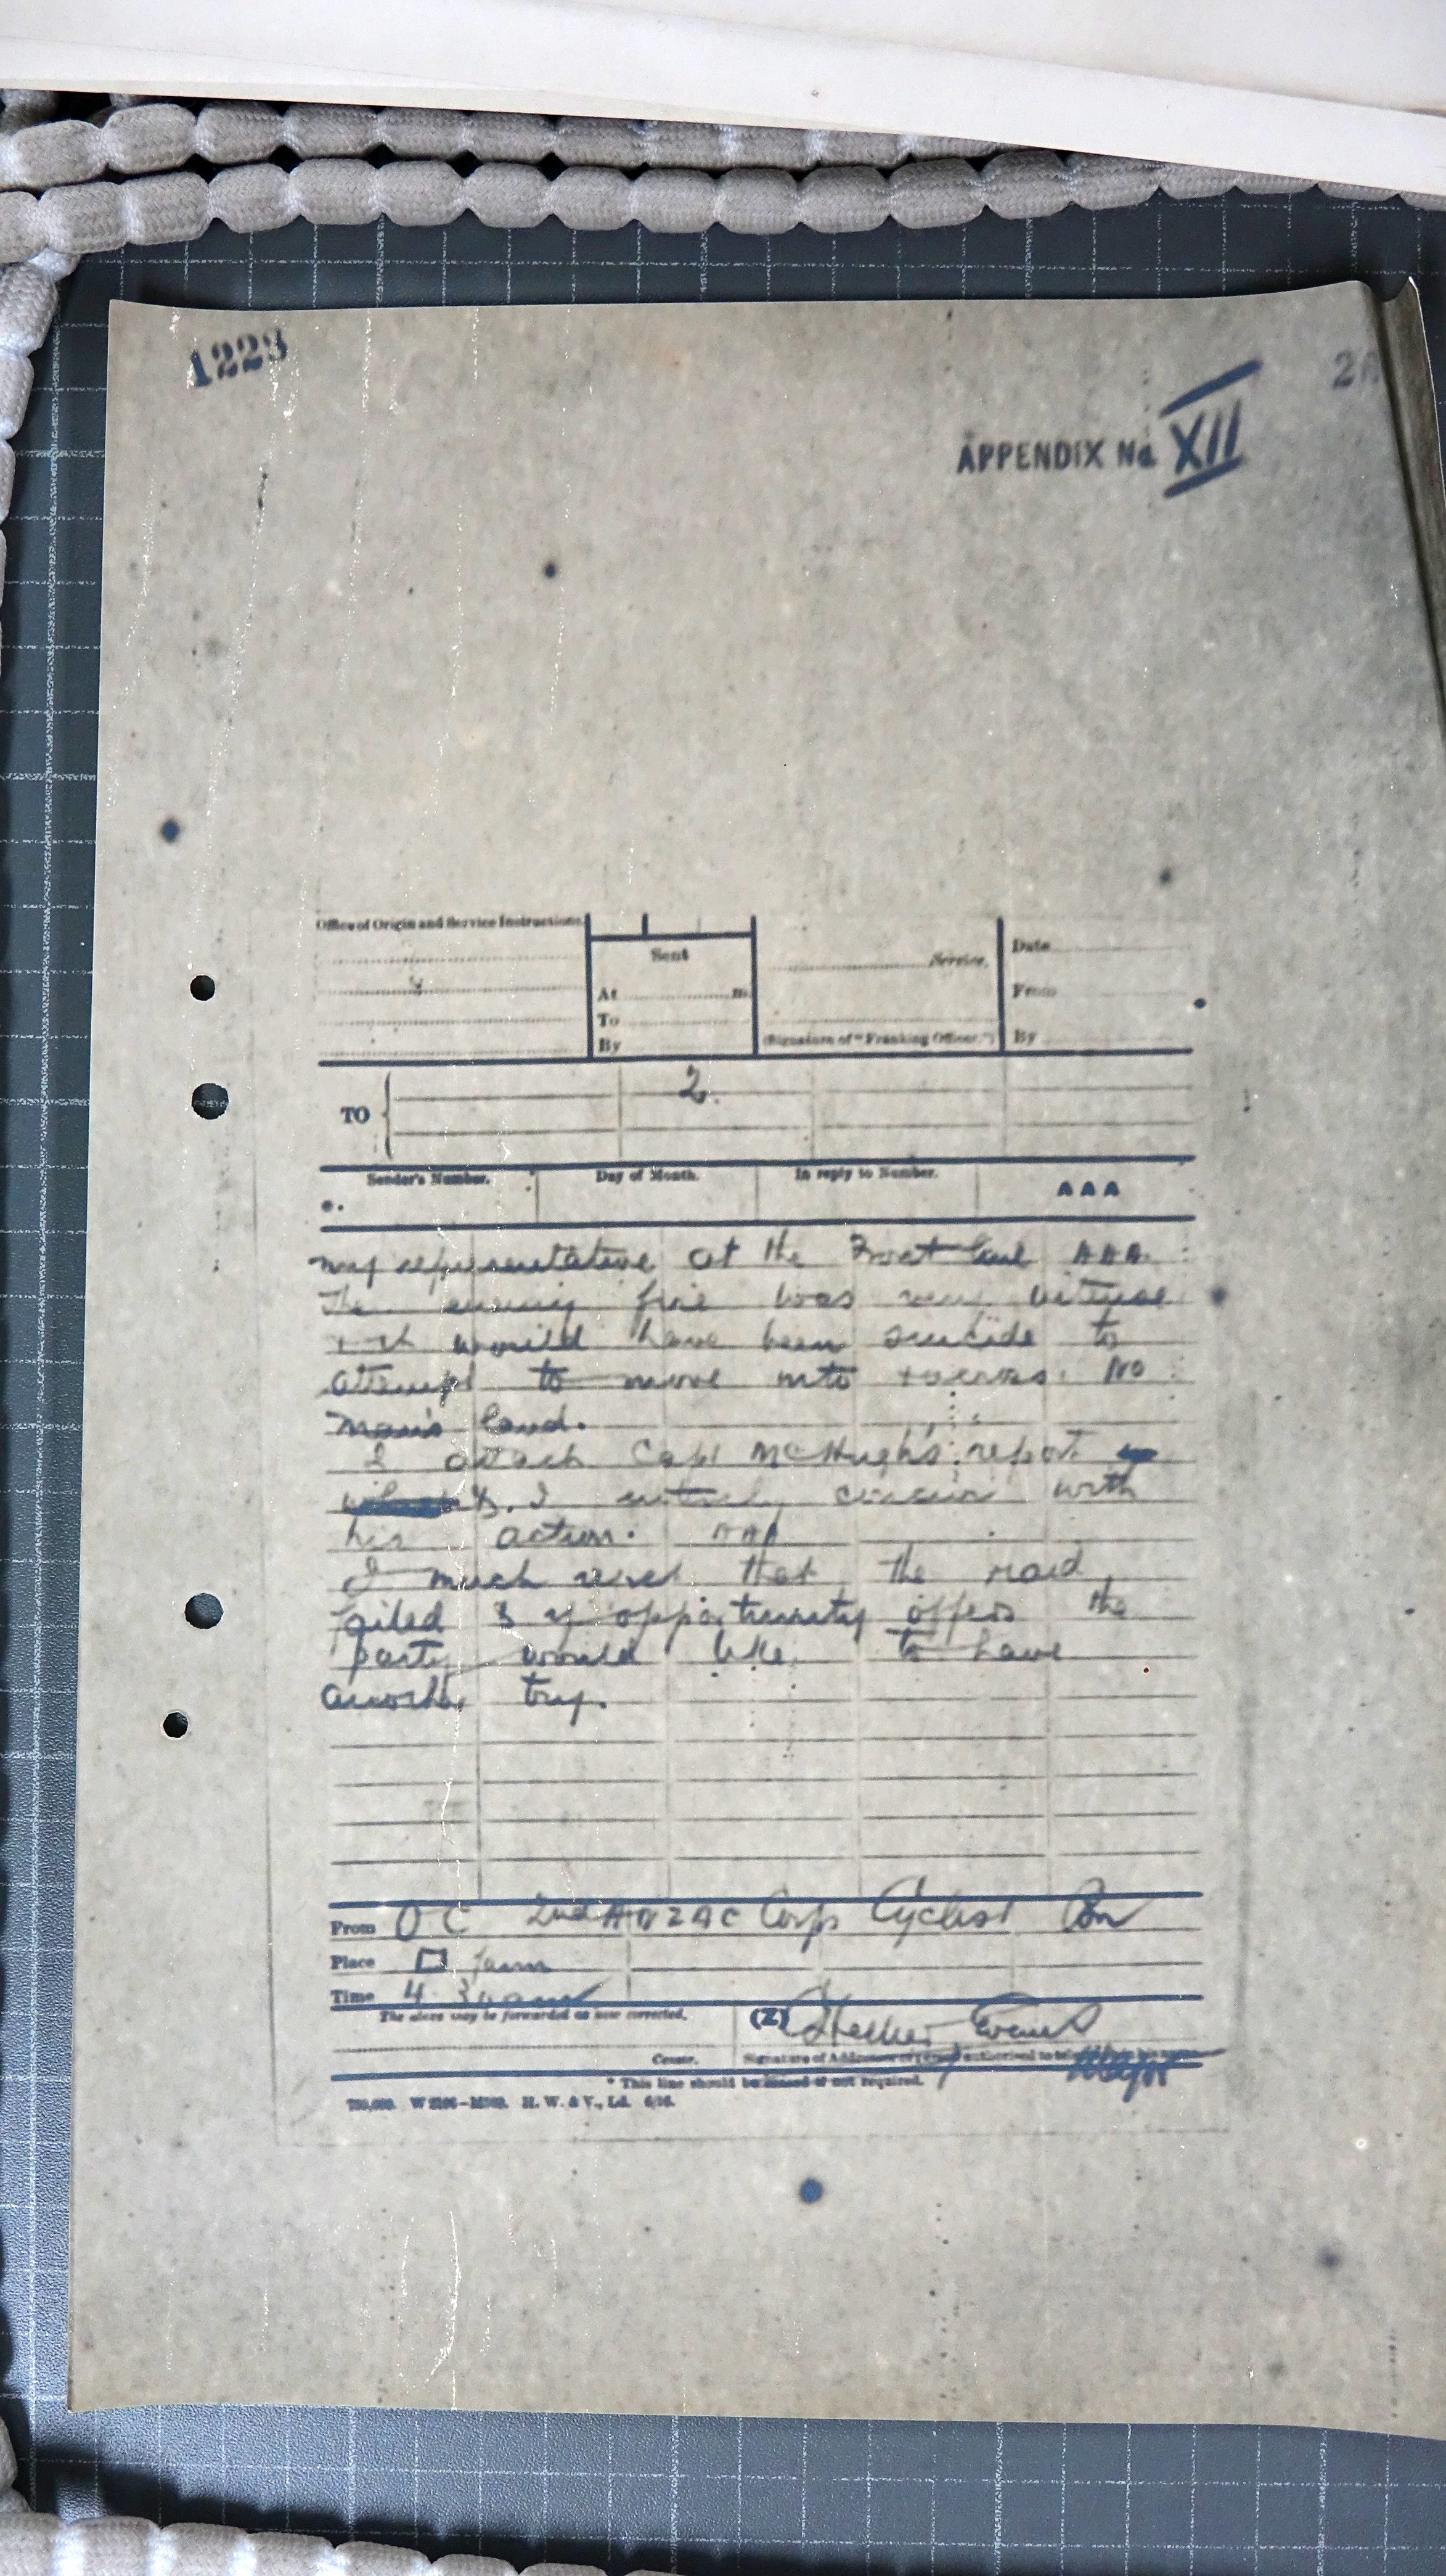 1223
APPENDIX No XII
Office of Origin and Service Instructions.
Sent
At m.
To
By
Service.
(Signature of "Franking Officer.")
Date
From
By
TO
2.
Sender's Number.
Day of Month.
In reply to Number.
AAA
my representative at the Front line AAA.
The enemy fire was very intense
+ it would have been suicide to
attempt to move into + across No
Man's Land.
I attach Capt McHugh's report
& I entirely concur with
his action. AAA
I much regret that the raid
failed & if opportunity offers the
party would like to have
another try.
From OC 2nd ANZAC Corps Cyclist Bn
Place farm
Time 4. 30 am
The above may be forwarded as now corrected.
(Z)
Evans
Major
Censor.
Signature of Addressor or person authorised to telegraph in his name.
* This line should be erased if not required.
H. W. & V., Ld. 6/16.